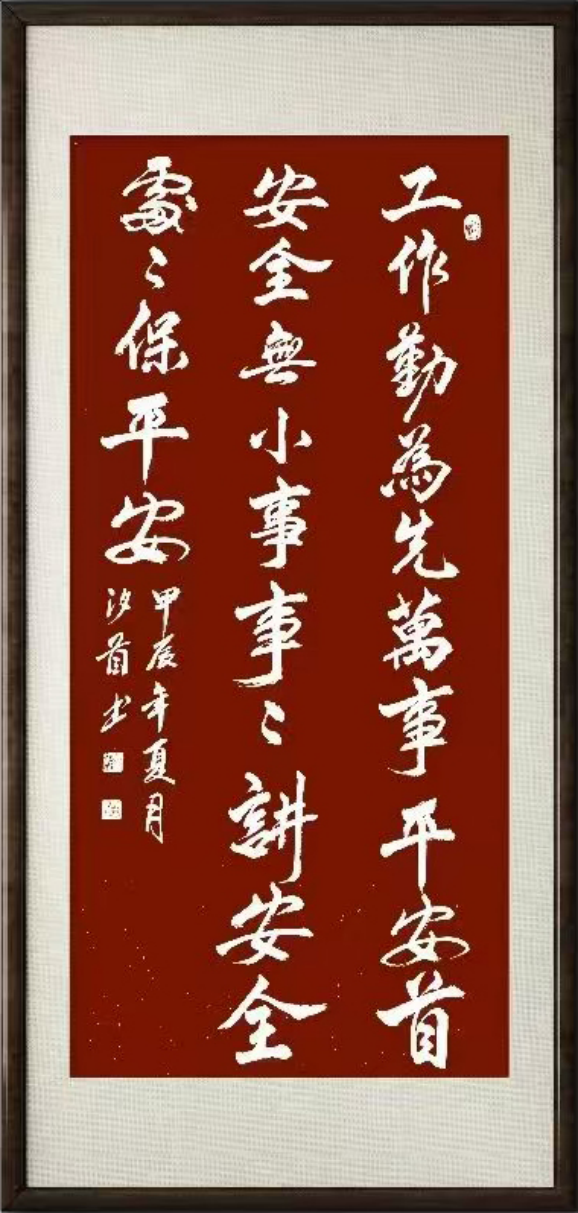 工作勤為先萬事平安首
安全無小事事〻講安全
處〻保平安
甲辰年夏月
汐首书